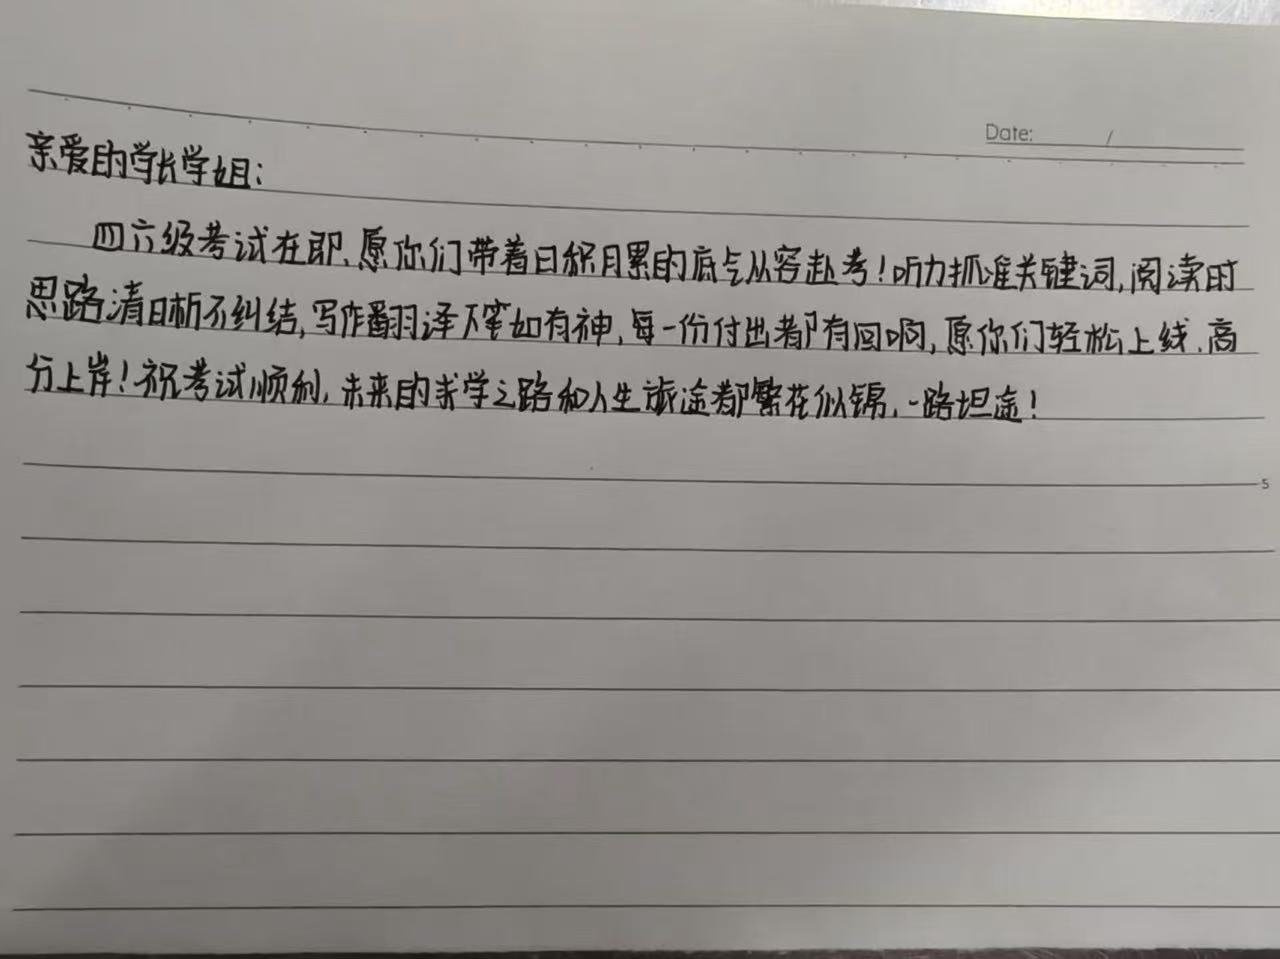 Date: /
亲爱的学长学姐：
四六级考试在即、愿你们带着日积月累的底气从容赴考！听力抓准关键词,阅读时
思路清晰不纠结,写作翻译下笔如有神,每一份付出都有回响,愿你们轻松上线、高
分上岸！祝考试顺利,未来的求学之路和人生旅途都繁花似锦、一路坦途！
5